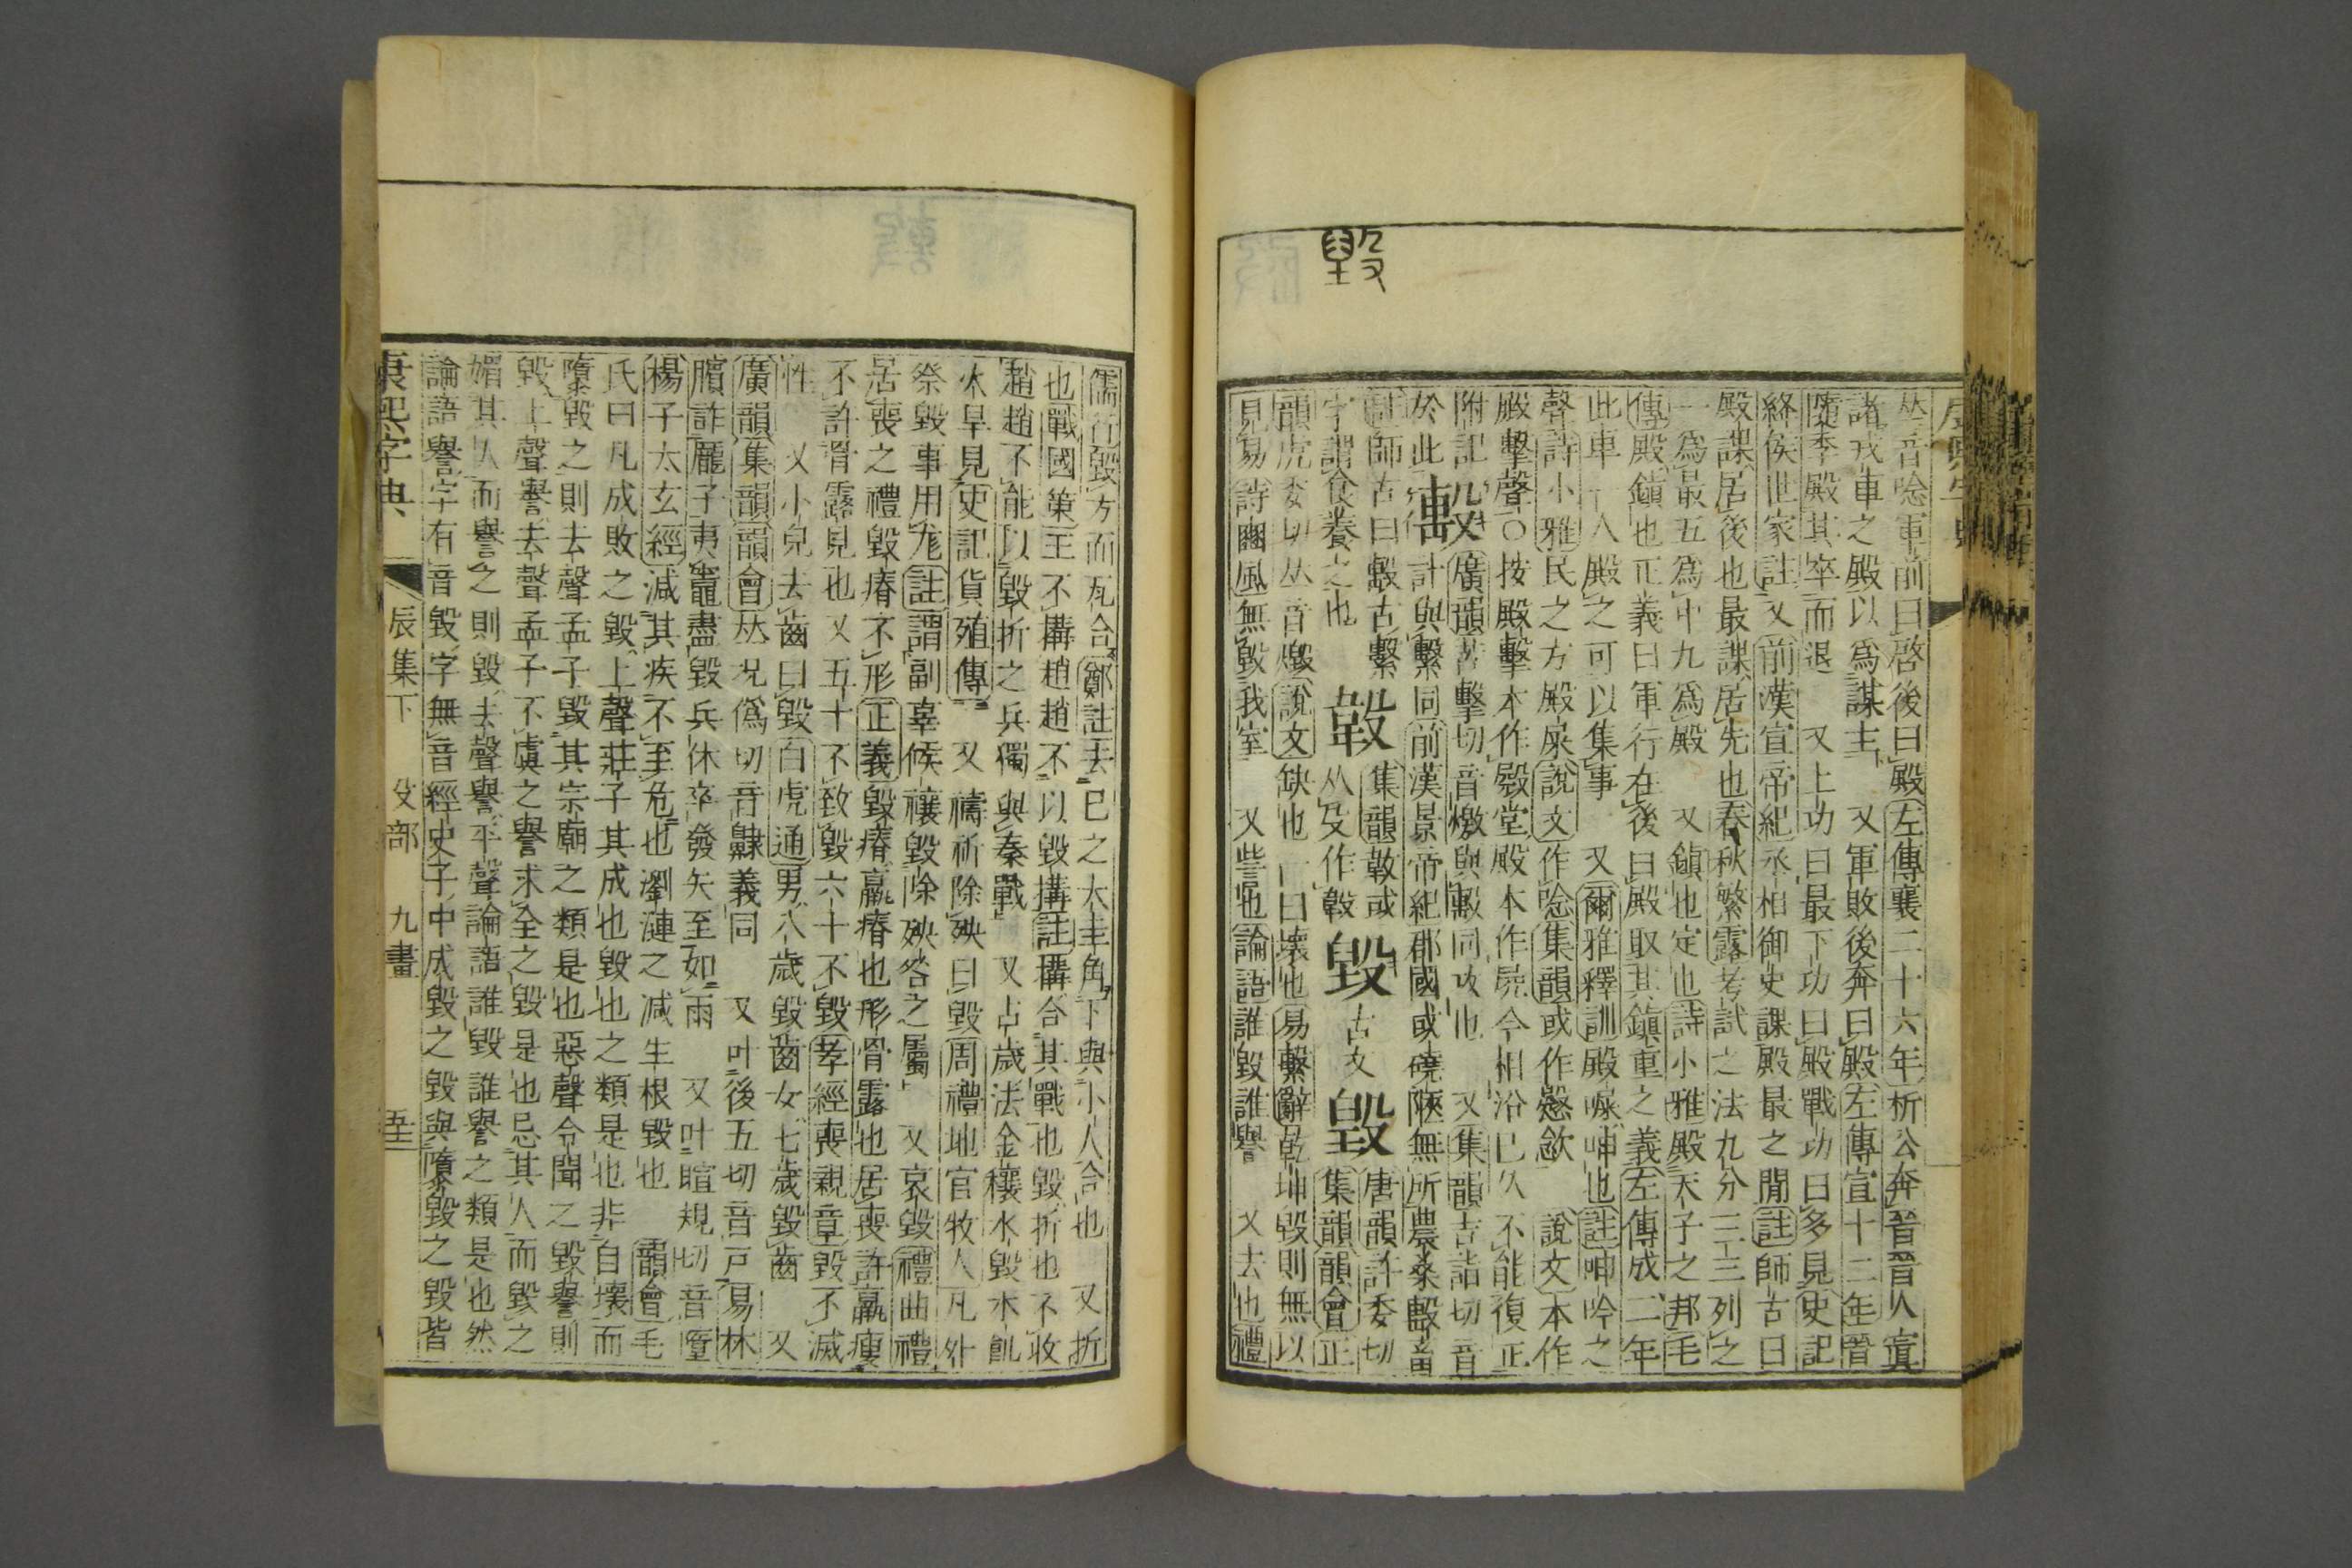 毀
𠀤音唸軍前曰啓後曰殿左傳襄二十六年析公奔晉晉人寘
諸戎車之殿以爲謀主 又軍敗後奔曰殿左傳宣十二年晉
隨季殿其卒而退 又上功曰最下功曰殿戰功曰多見史記
絳侯世家註又前漢宣帝紀丞相御史課殿最之聞註師古曰
殿課居後也最課居先也春秋繁露考試之法九分三三列之
一爲最五爲中九爲殿 又鎭也定也詩小雅殿天子之邦毛
傳殿鎭也正義曰軍行在後曰殿取其鎭重之義左傳成二年
此車一人殿之可以集事 又爾雅釋訓殿屎呻也註呻吟之
聲詩小雅民之方殿屎說文作唸集韻或作慇歘 說文本作
㱾擊聲○按殿擊本作㱾堂殿本作𡱂今相沿已久不能復正
附記
於此 㲉 廣韻苦擊切音燩與毄同攻也 又集韻吉詣切音
計與繫同前漢景帝紀郡國或磽陿無所農桑毄畜
註師古曰毄古繫
字謂食養之也 㪟 集韻敦或
从殳作㪟 毀 古文 毁 唐韻許委切
集韻韻會正
韻虎委切𠀤音燬說文缺也一曰壞也易繫辭乾坤毀則無以
見易詩豳風無毀我室 又訾也論語誰毀誰譽 又去也禮
儒行毀方而瓦合鄭註去己之大圭角下與小人合也 又折
也戰國策王不搆趙趙不以毀搆註搆合其戰也毀折也不收
趙趙不能以毀折之兵獨與秦戰 又占歲法金穰水毀木飢
火旱見史記貨殖傳 又禱祈除殃曰毀周禮地官牧人凡外
祭毀事用尨註謂副辜候禳毀除殃咎之屬 又哀毀禮曲禮
居喪之禮毀瘠不形正義毀瘠羸瘠也形骨露也居喪許羸瘦
不許骨露見也又五十不致毀六十不毀孝經喪親章毀不滅
性 又小兒去齒曰毀白虎通男八歲毀齒女七歲毀齒 又
廣韻集韻韻會𠀤况僞切音䫭義同 又叶後五切音戸易林
臏詐龐子夷竈盡毀兵休卒發矢至如雨 又叶暄規切音墮
楊子太玄經減其疾不至危也瀏漣之減生根毀也 韻會毛
氏曰凡成敗之毀上聲莊子其成也毀也之類是也非自壞而
隳毀之則去聲孟子毀其宗廟之類是也惡聲令聞之毀譽則
毀上聲譽去聲孟子不虞之譽求全之毀是也忌其人而毀之
媢其人而譽之則毀去聲譽平聲論語誰毀誰譽之類是也然
論語譽字有音毀字無音經史子中成毀之毀與隳毀之毀皆
康熙字典 辰集下 殳部 九畫